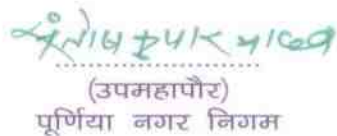 संतोष कुमार यादव
(उपमहापौर)
पूर्णिया नगर निगम